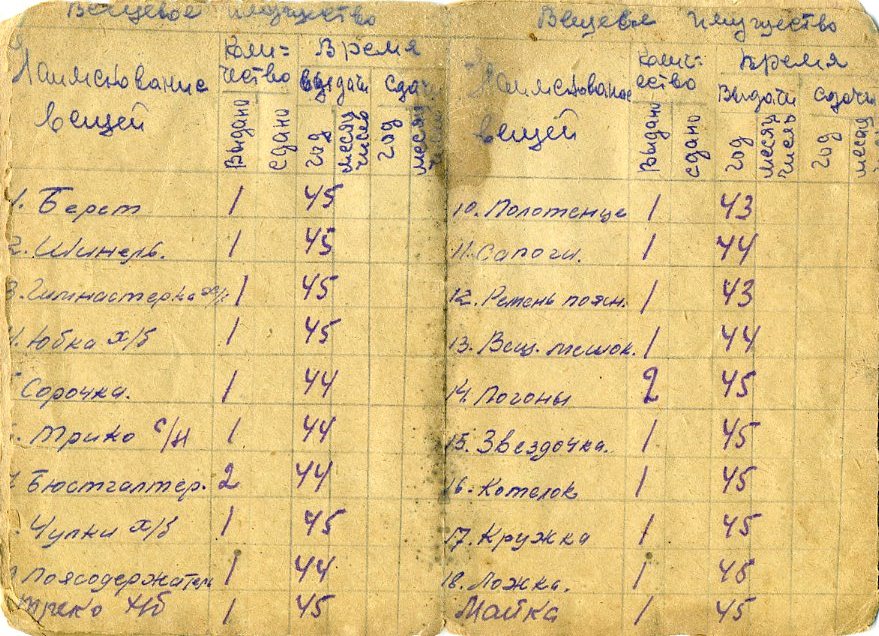 Вещевое имущество
Наименование вещей
Коли- Время
чество выдачи сдачи
Выдано сдано год месяц число год месяц
1. Берет 1 45
2. Шинель. 1 45
3. Гимнастерка х/б 1 45
4. Юбка х/б 1 45
5 Сорочка. 1 44
6. Трико с/н 1 44
7. Бюстгалтер. 2 44
. Чулки х/б 1 45
. Поясодержатель 1 44
трико х/б 1 45
Вещевое имущество
Наименование вещей
Колич- Время
ество Выдачи сдачи
Выдано сдано год месяц число год месяц
10. Полотенце 1 43
11. Сапоги. 1 44
12. Ремень поясн. 1 43
13. Вещ. мешок. 1 44
14. Погоны 2 45
15. Звездочка. 1 45
16. Котелок 1 45
17. Кружка 1 45
18. Ложка. 1 45
Майка 1 45